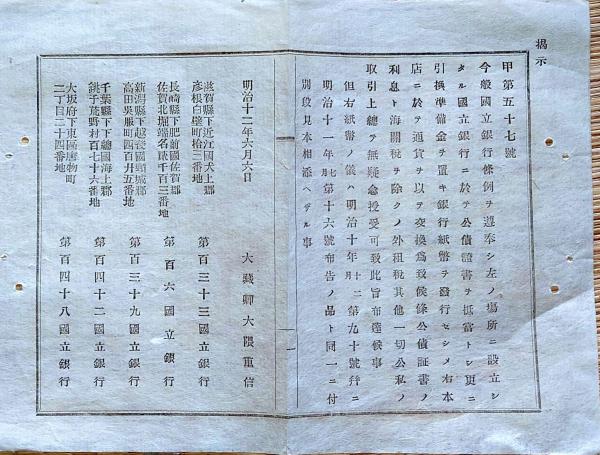 揭示
甲第五十七號
今般國立銀行條例ヲ遵奉シ左ノ場所ニ設立シ
タル國立銀行ニ於テ公債證書ヲ抵當トシ更ニ
引換準備金ヲ置キ銀行紙幣ヲ發行セシメ右本
店ニ於テ通貨ヲ以テ交換爲致候條公債証書ノ
利息ト海關稅ヲ除クノ外租稅其他一切公私ノ
取引上總テ無疑念授受可致此旨布達候事
但右紙幣ノ儀ハ明治十年十二月第九十號幷ニ
明治十一年七月第十六號布告ノ品ト同一ニ付
別段見本相添ヘザル事
明治十二年六月六日
大藏卿大隈重信
滋賀縣下近江國犬上郡
彥根白壁町拾三番地
第百三十三國立銀行
長崎縣下肥前國佐賀郡
佐賀北堀端名蹟千百三番地
第百六國立銀行
新潟縣下越後國頸城郡
高田吳服町四百廿五番地
第百三十九國立銀行
千葉縣下下總國海上郡
銚子荒野村百七十六番地
第百四十二國立銀行
大坂府下東區唐物町
二丁目二十四番地
第百四十八國立銀行